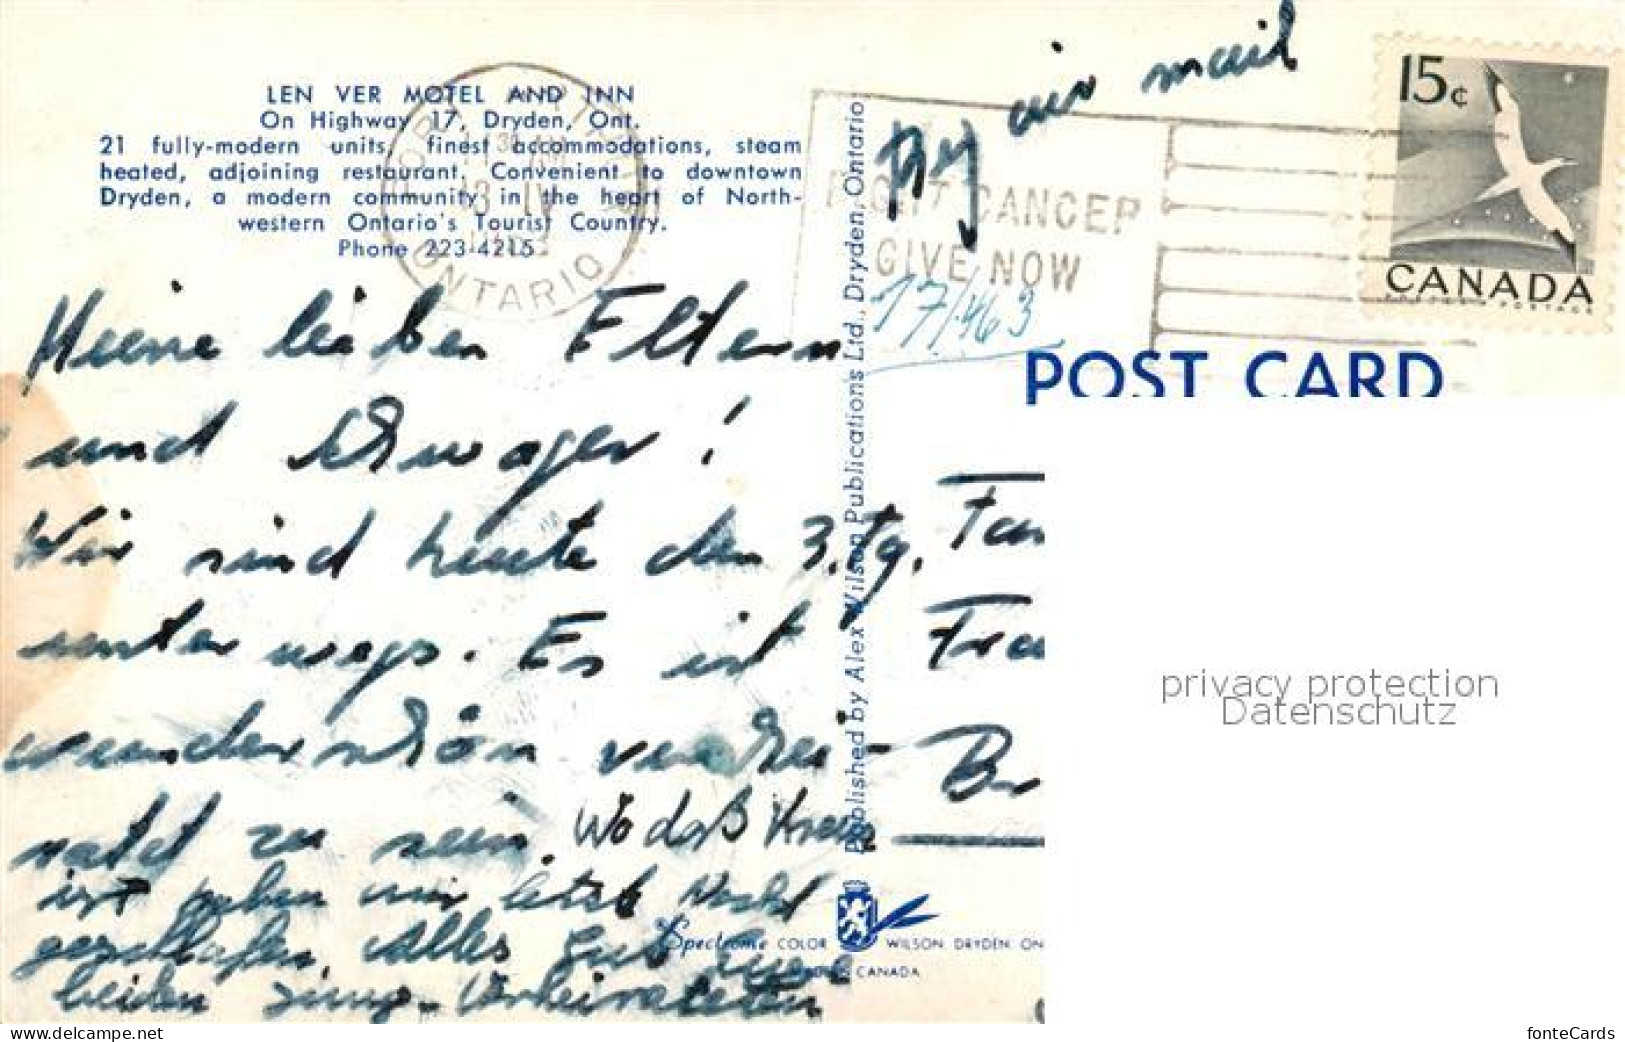 LEN VER MOTEL AND INN
On Highway 17, Dryden, Ont.
21 fully-modern units, finest accommodations, steam
heated, adjoining restaurant. Convenient to downtown
Dryden, a modern community in the heart of North-
western Ontario's Tourist Country.
Phone 223-4215
ONTARIO
By air mail
FIGHT CANCER
GIVE NOW
15c
CANADA
POSTES POSTAGE
POST CARD
Meine lieben Eltern
und Schwager!
Wir sind heute den 3. Tg.
unterwegs. Es ist
wunderschön verhei-
ratet zu sein. Wo das Kreuz
ist haben wir letzte Nacht
geschlafen. Alles Gute Eure
beiden jung-Verheirateten
Published by Alex Wilson Publications Ltd., Dryden, Ontario
Fam
Fra
Br
Spectrome COLOR WILSON DRYDEN ON
CANADA
privacy protection
Datenschutz
delcampe.net
fonteCards